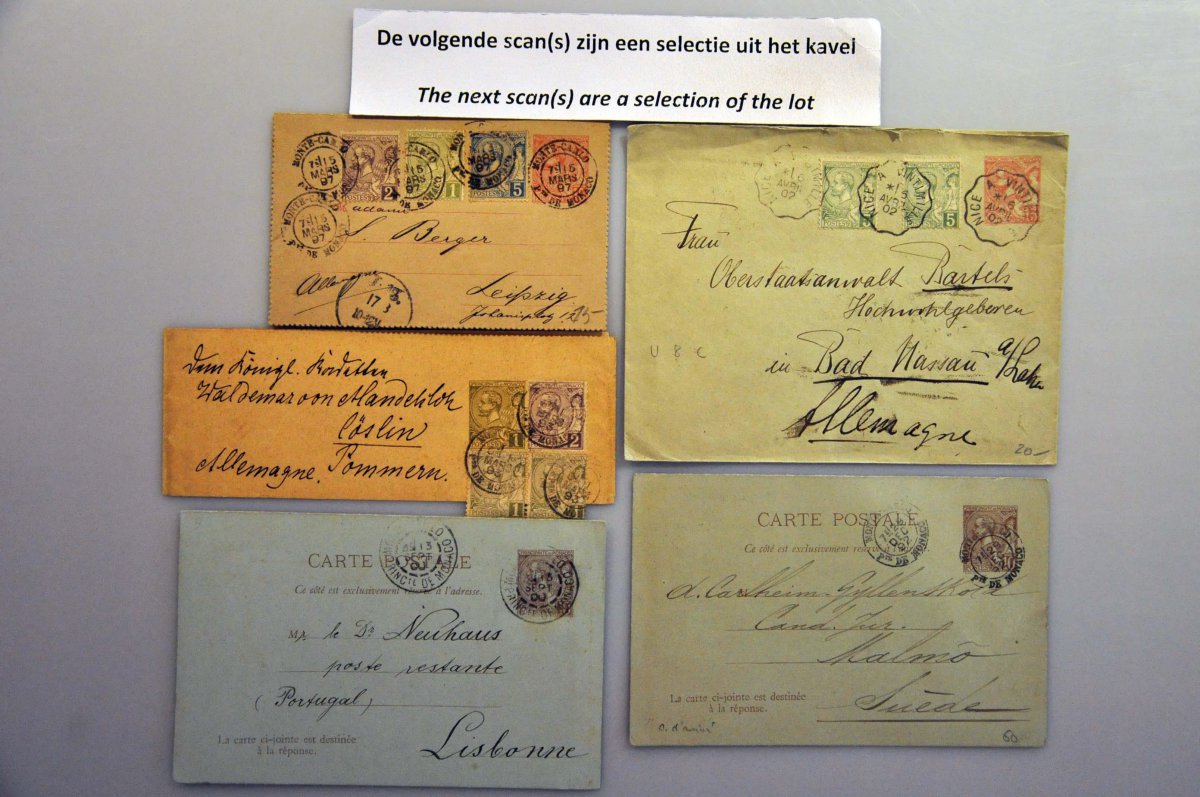 De volgende scan(s) zijn een selectie uit het kavel
The next scan(s) are a selection of the lot
MONTE-CARLO
15
MARS
97
Pté DE MONACO
POSTES
2
1
5
S. Berger
Allemagne
Leipzig
17
3
NICE A VINTIMILLE
AVRIL
02
5
15
Frau
Oberstaatsanwalt Bartels
Hochwohlgeboren
in Bad Nassau a/Lahn
Allemagne
20-
Dem Königl. Kadetten
Waldemar von Mandelsloh
Cöslin
Allemagne, Pommern.
1
2
1
1
CARTE POSTALE
Ce côté est exclusivement réservé à l'adresse.
MONTE-CARLO
13
SEPT
PRINCTÉ DE MONACO
Mr le Dr Neuhaus
poste restante
(Portugal)
Lisbonne
La carte ci-jointe est destinée
à la réponse.
CARTE POSTALE
Ce côté est exclusivement
DEC
Pté DE MONACO
Cand. Jur.
Malmö
Suède
La carte ci-jointe est destinée
à la réponse.
60